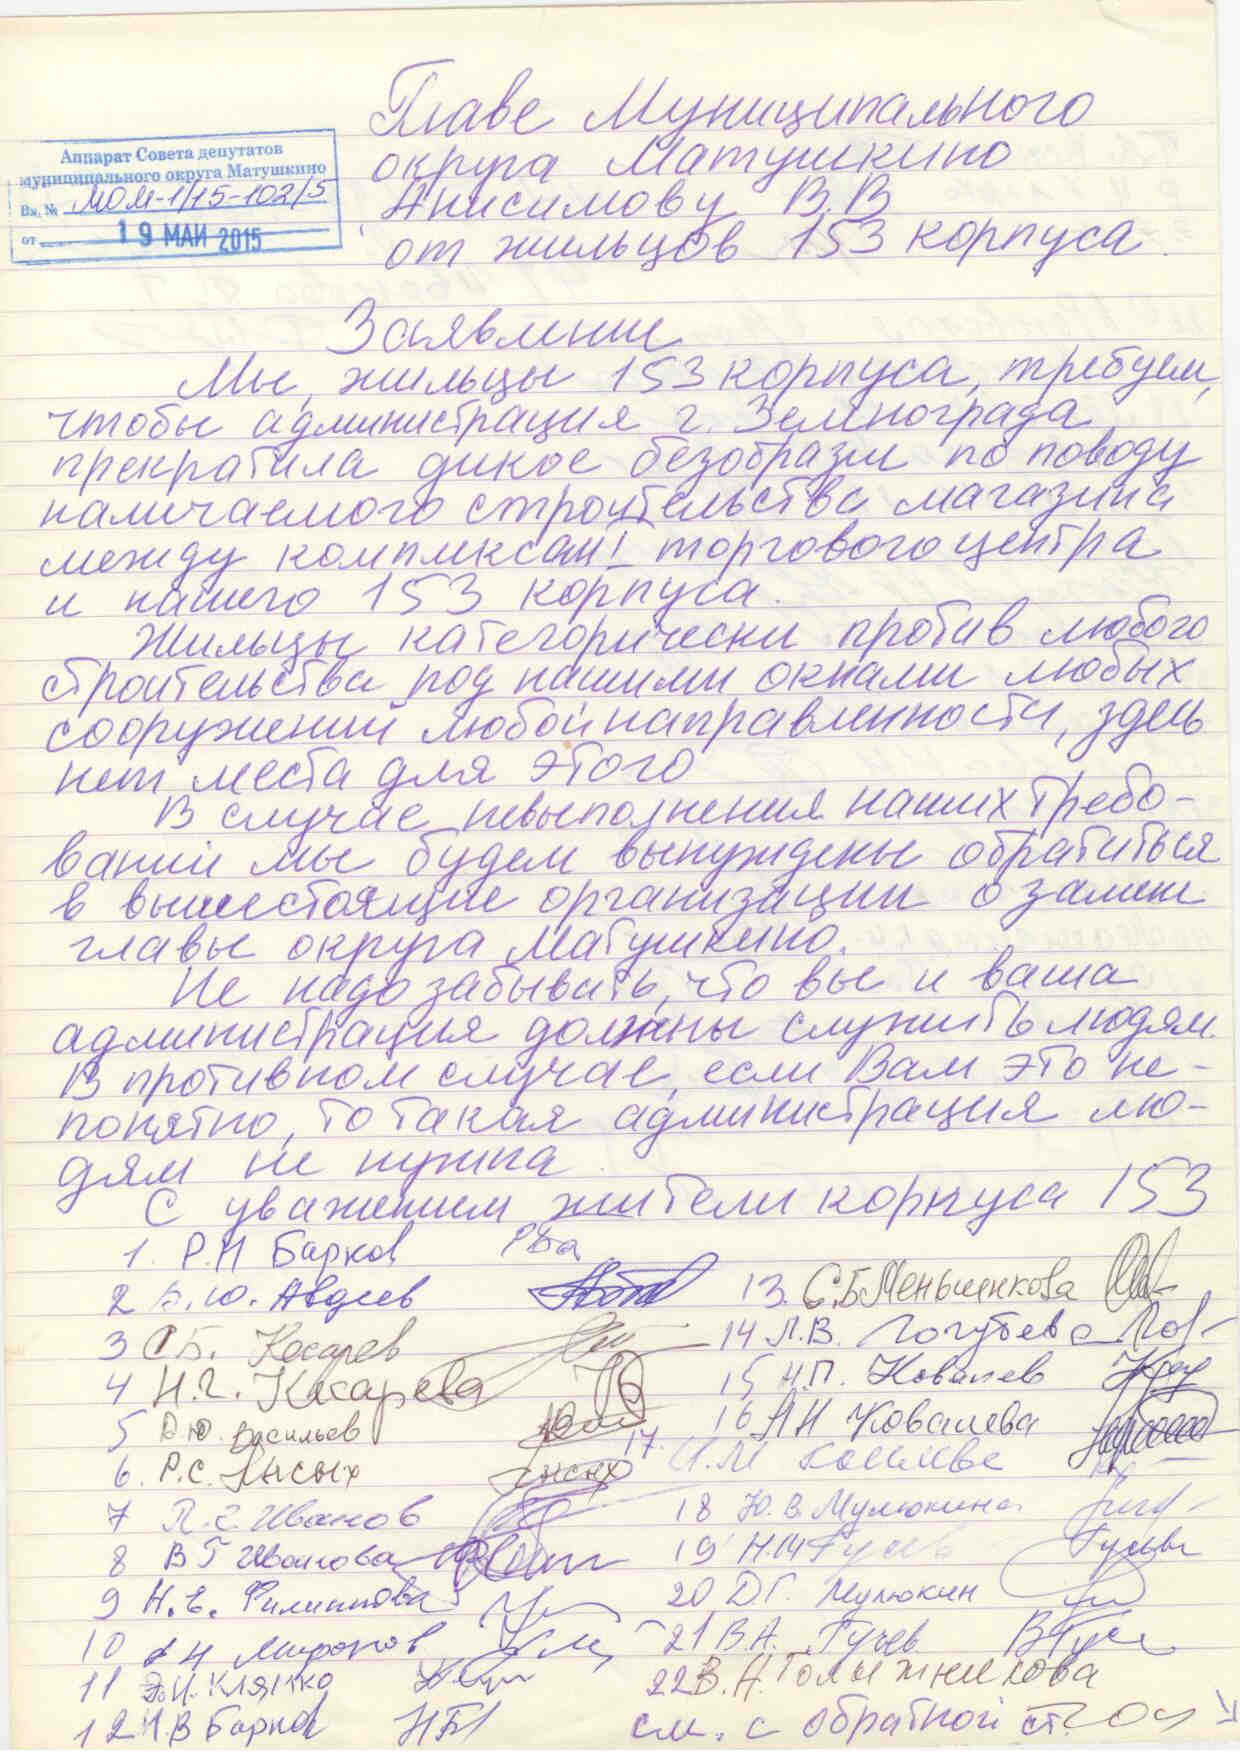 Главе Муниципального
округа Матушкино
Анисимову В.В
от жильцов 153 корпуса.
Аппарат Совета депутатов
муниципального округа Матушкино
Вх. № МОМ-1/15-102/5
от 19 МАЙ 2015
Заявление
Мы, жильцы 153 корпуса, требуем,
чтобы администрация г. Зеленограда
прекратила дикое безобразие по поводу
намечаемого строительства магазина
между комплексом торгового центра
и нашего 153 корпуса.
Жильцы категорически против любого
строительства под нашими окнами любых
сооружений любой направленности, здесь
нет места для этого
В случае невыполнения наших требо-
ваний мы будем вынуждены обратиться
в вышестоящие организации о замене
главы округа Матушкино.
Не надо забывать, что вы и ваша
администрация должны служить людям.
В противном случае, если Вам это не-
понятно, то такая администрация лю-
дям не нужна.
С уважением жители корпуса 153
1. Р.Н Барков
2 Б.Ю. Авдеев
3 С Б. Косарев
4 Н.Г. Косарева
5 Ю. Васильев
6. Р.С. Лысых
7 Л.Г. Иванов
8 В Г Иванова
9 Н.Е. Филиппова
10 Н Миронов
11 Э.И. Кляцко
12 Н.В Барков
13. С.Б Меньшенкова
14 Л.В. Голубева
15 Н.П. Ковалев
16 А Н Ковалева
17. И.М
18 Ю.В. Мулюкина
19 Н.М Гусева
20 Д.Г. Мулюкин
21 В.А. Гусев
22 В.Н. Голыжникова
см. с обратной ст.